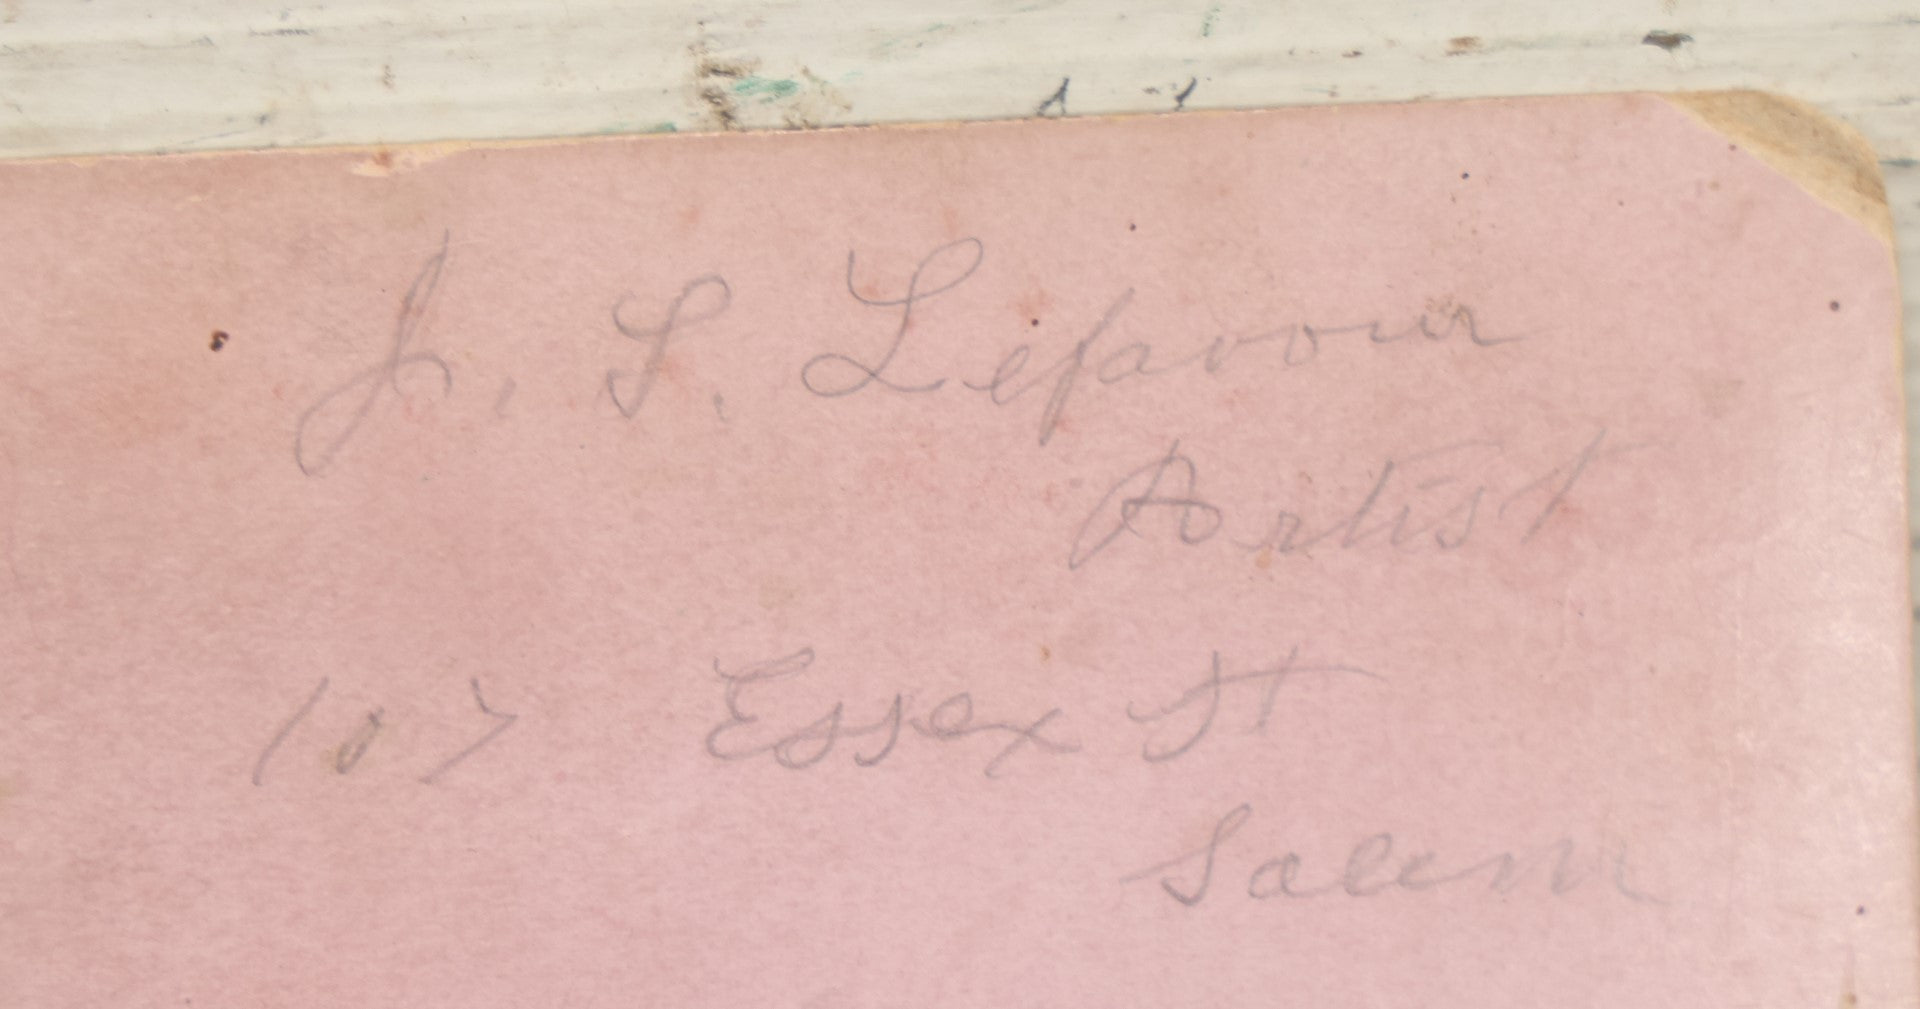 J. S. Lefavour
Artist
107 Essex St
Salem